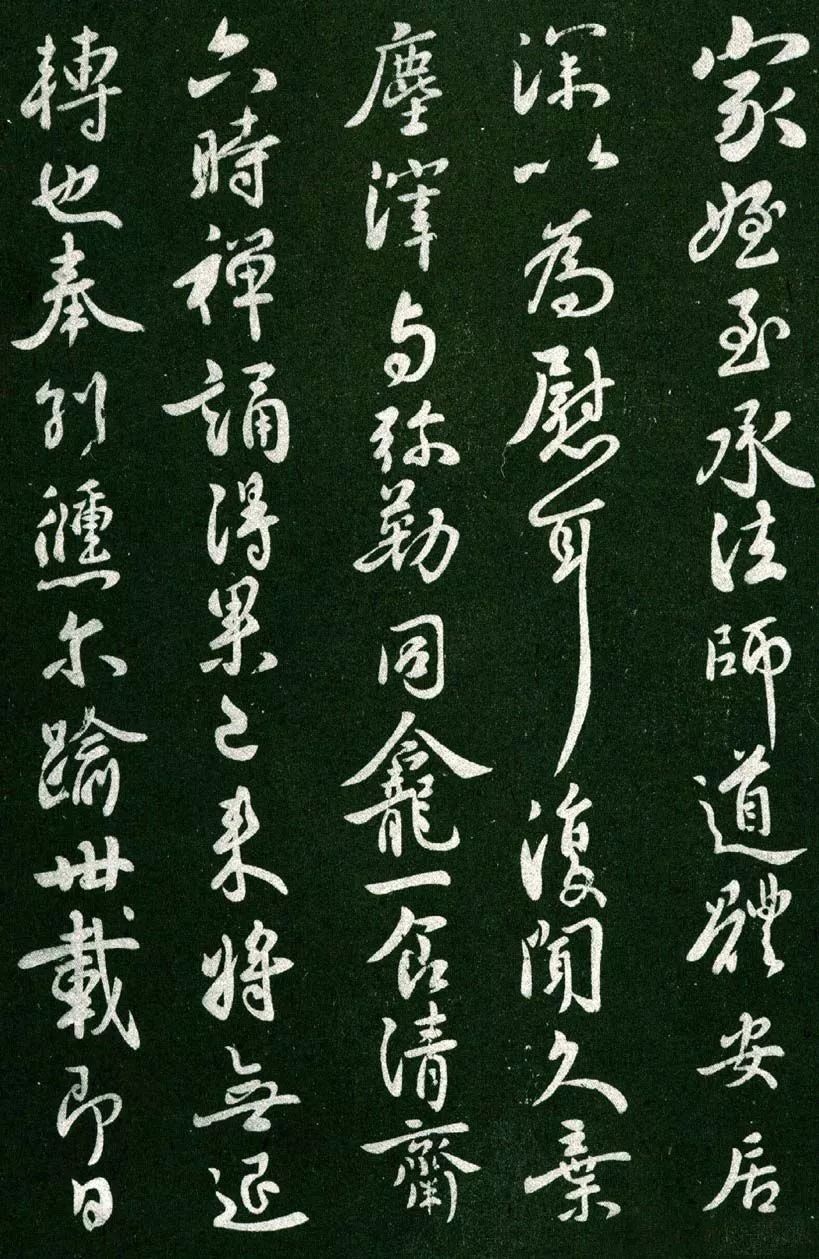 家姪至承法師道體安居
深以為慰耳復聞久棄
塵滓与弥勒同龕一食清齋
六時禪誦得果已来將無退
轉也奉別倏尔踰卅載即日